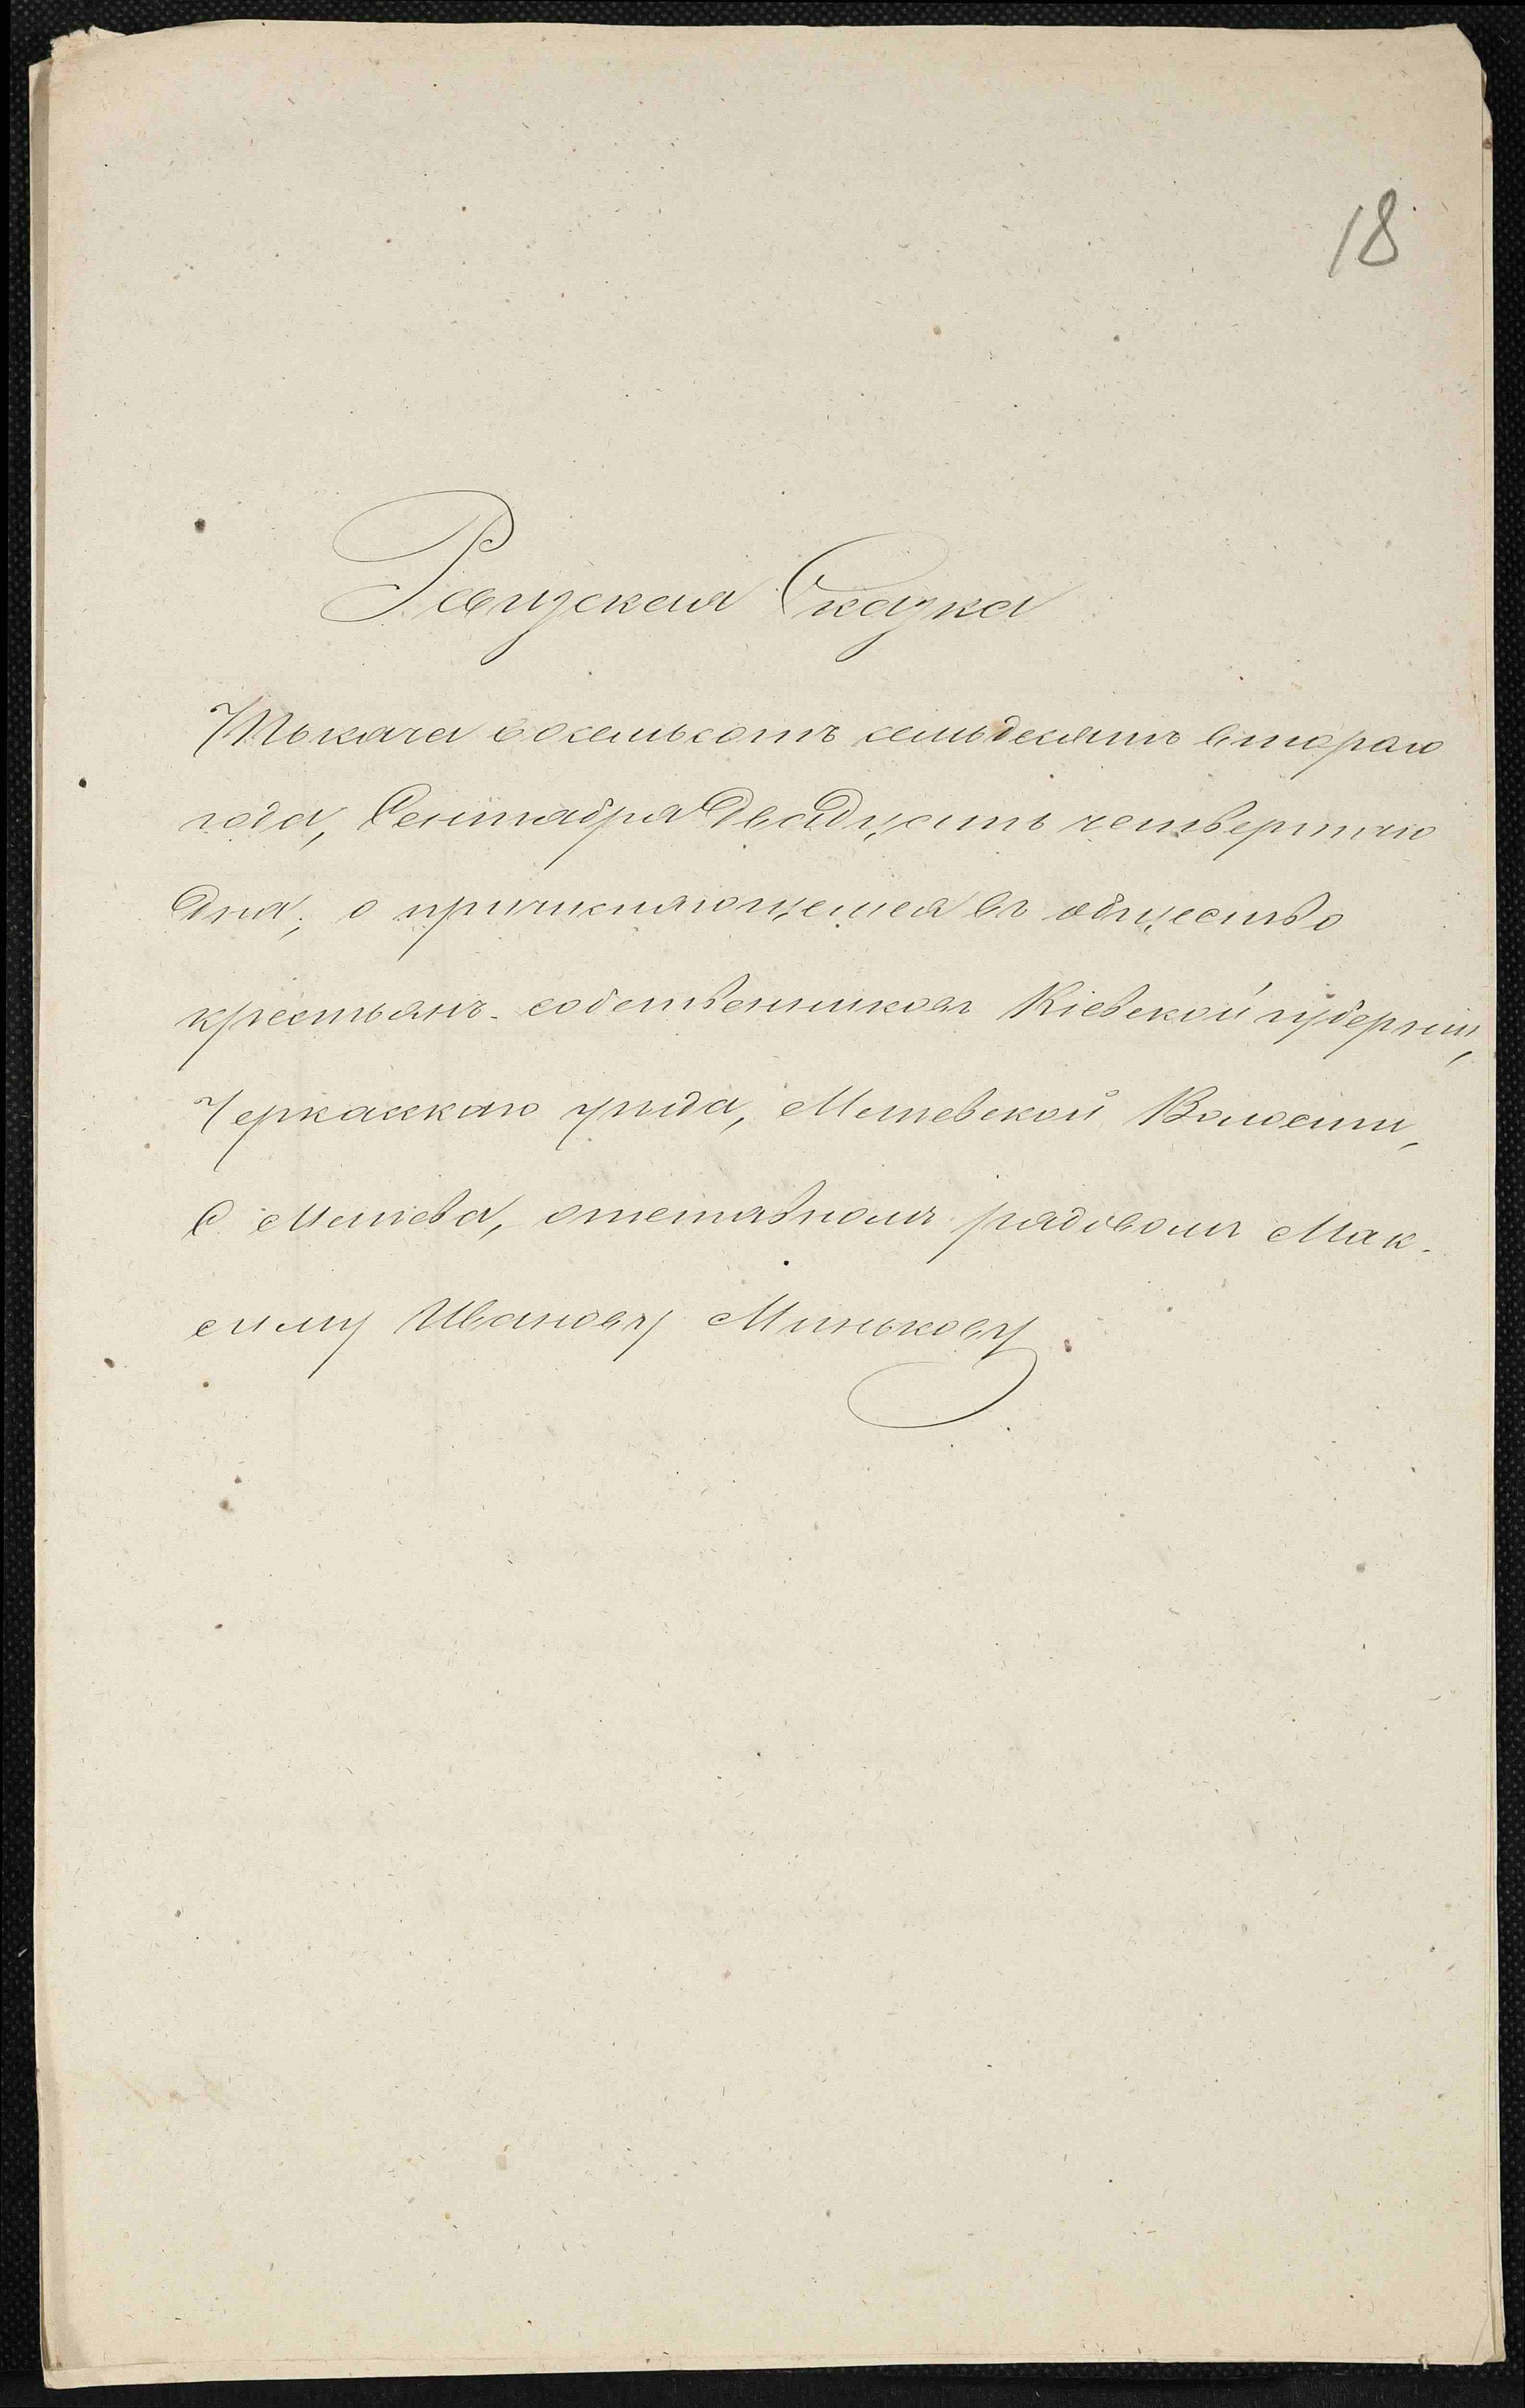 18
Ревизская Сказка
Тысяча восемьсотъ семьдесятъ втораго
года, Сентября двадцать четвертаго
дня, о причисляющемся въ общество
крестьянъ-собственниковъ Кіевской губерніи,
Черкасскаго уѣзда, Мліевской Волости,
с. Мліева, отставномъ рядовомъ Мак-
симу Иванову Минькову